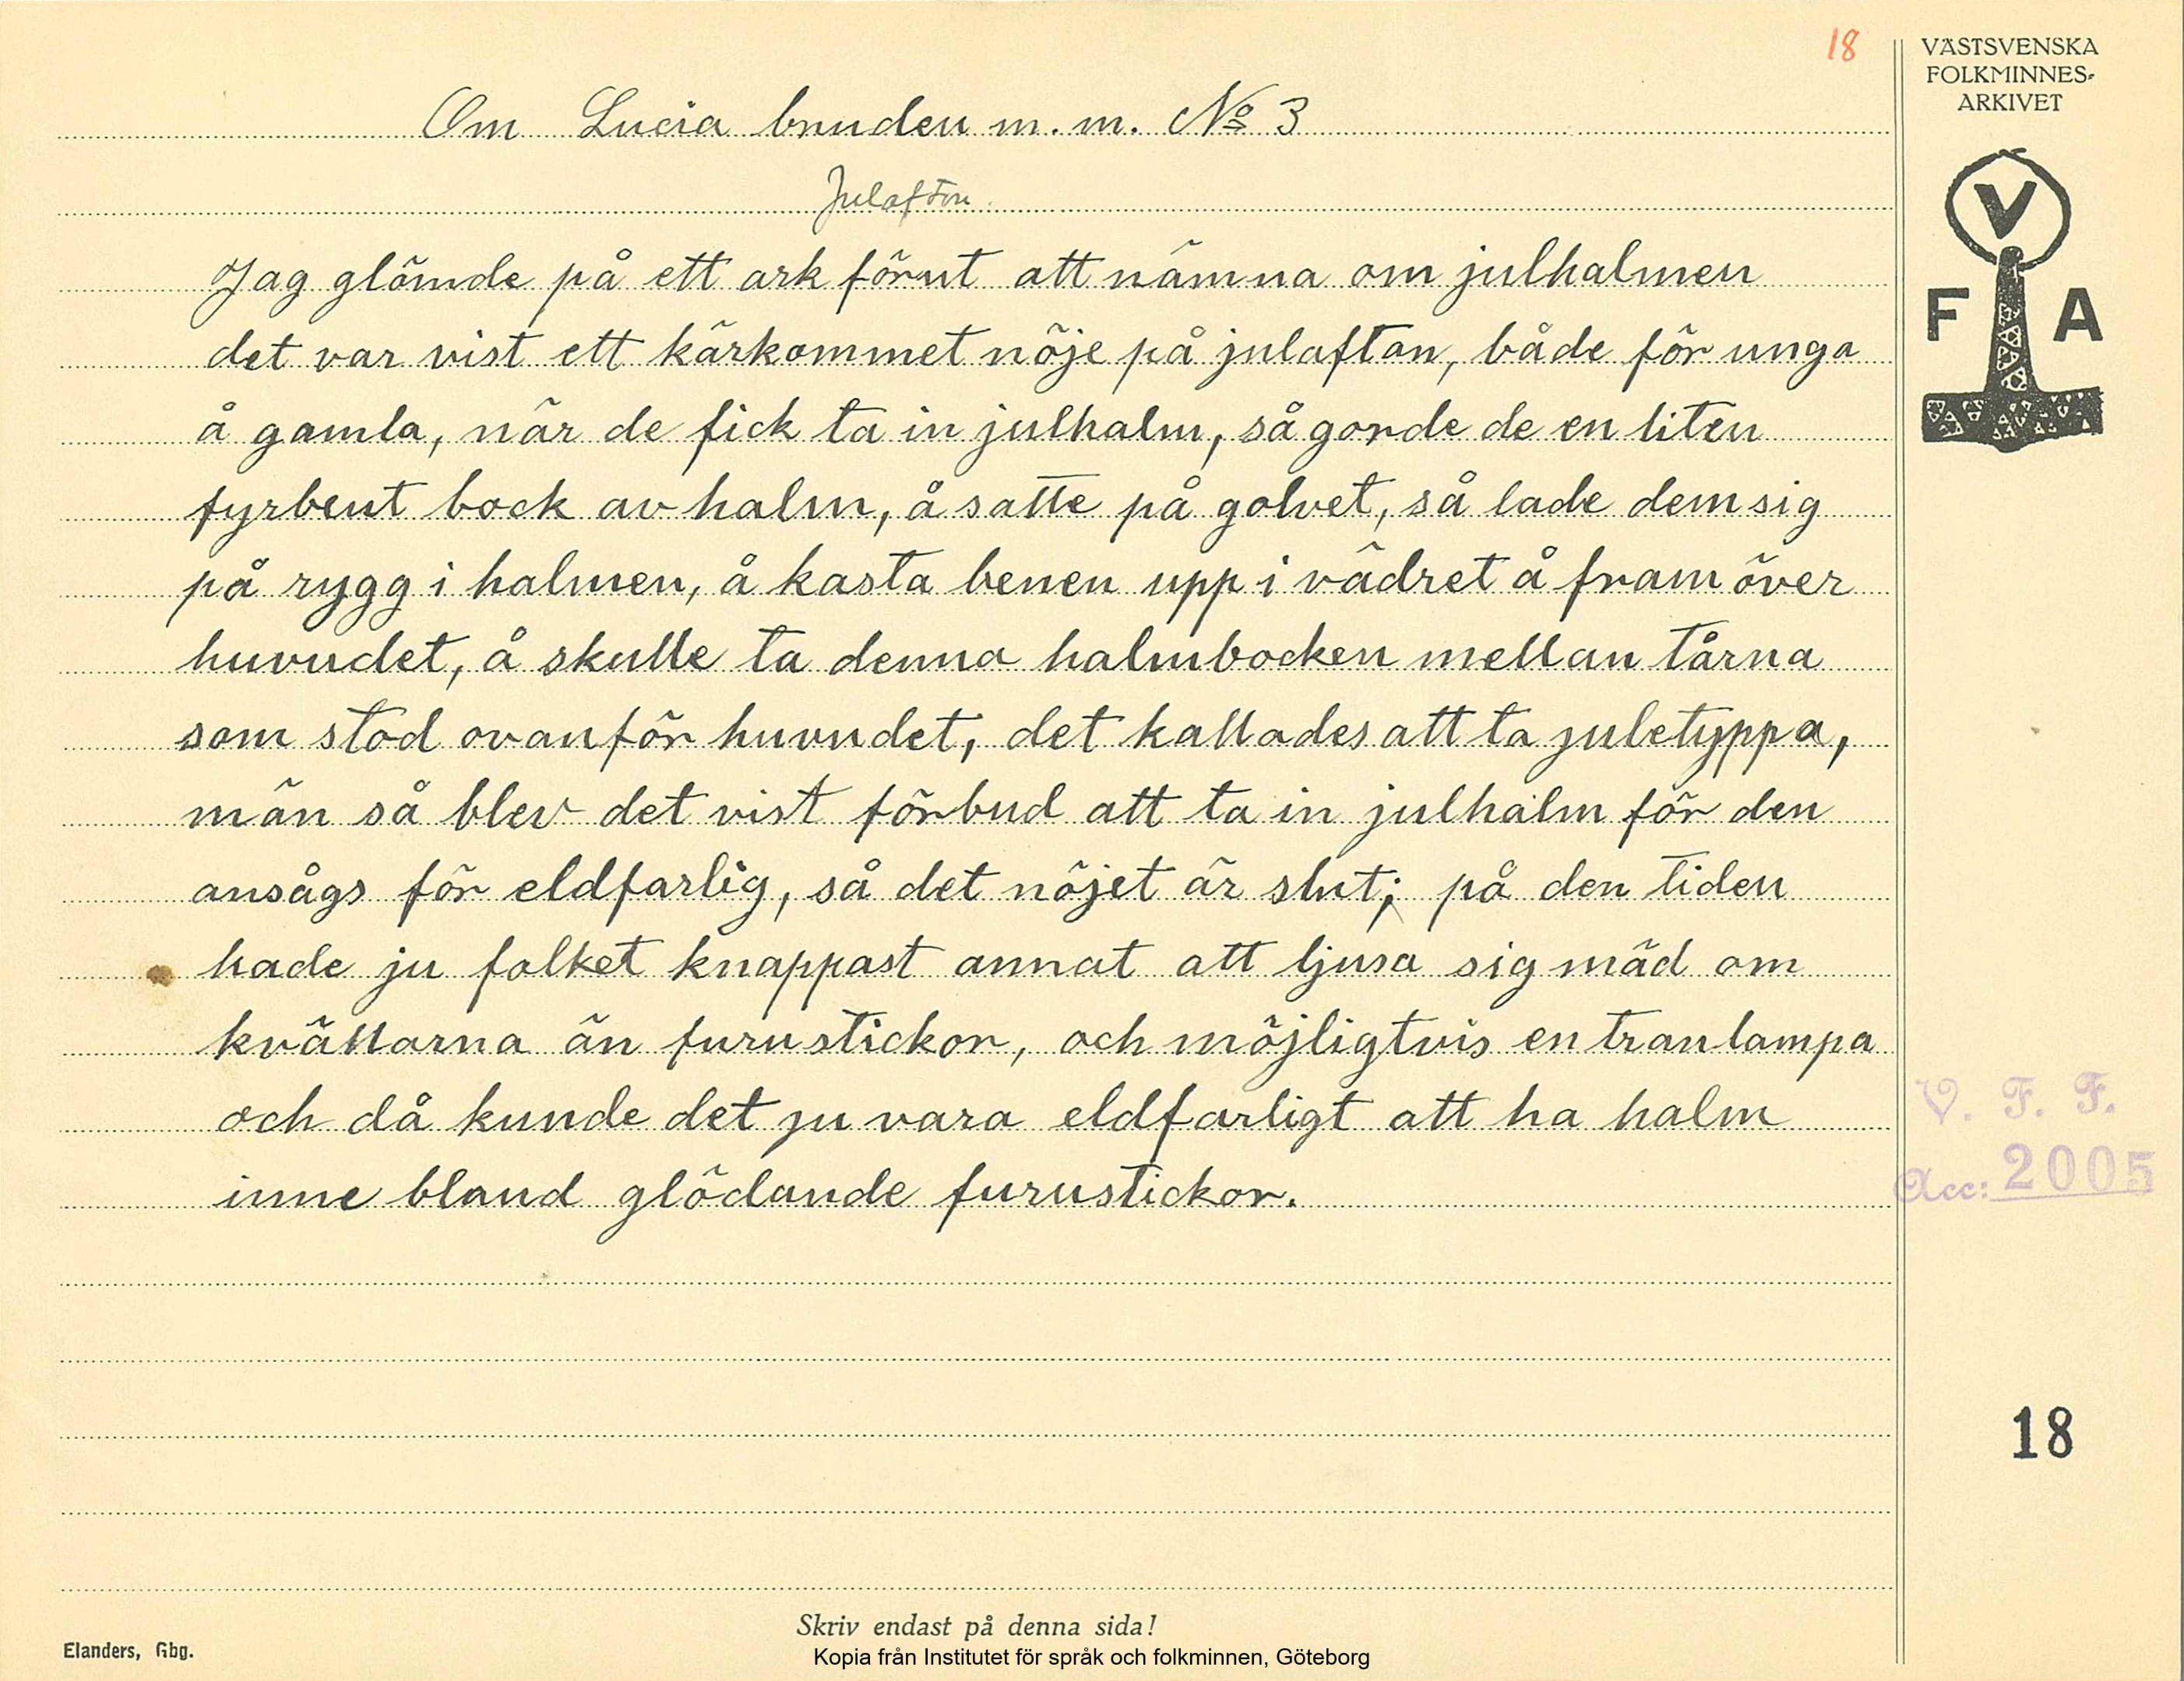 18
VÄSTSVENSKA
FOLKMINNES-
ARKIVET
V
F A
Om Lucia bruden m.m. No 3
Julafton
Jag glömde på ett ark förut att nämna om julhalmen
det var vist ett kärkommet nöje på julaftan, både för unga
å gamla, när de fick ta in julhalm, så gorde de en liten
fyrbent bock av halm, å satte på golvet, så lade dem sig
på rygg i halmen, å kasta benen upp i vädret å fram över
huvudet, å skulle ta denna halmbocken mellan tårna
som stod ovanför huvudet, det kallades att ta juletyppa,
män så blev det vist förbud att ta in julhalm för den
ansågs för eldfarlig, så det nöjet är slut; på den tiden
hade ju folket knappast annat att ljusa sig mäd om
kvällarna än furustickor, och möjligtvis en tranlampa
och då kunde det ju vara eldfarligt att ha halm
inne bland glödande furustickor.
V. F. F.
Acc: 2005
18
Skriv endast på denna sida!
Elanders, Gbg.
Kopia från Institutet för språk och folkminnen, Göteborg